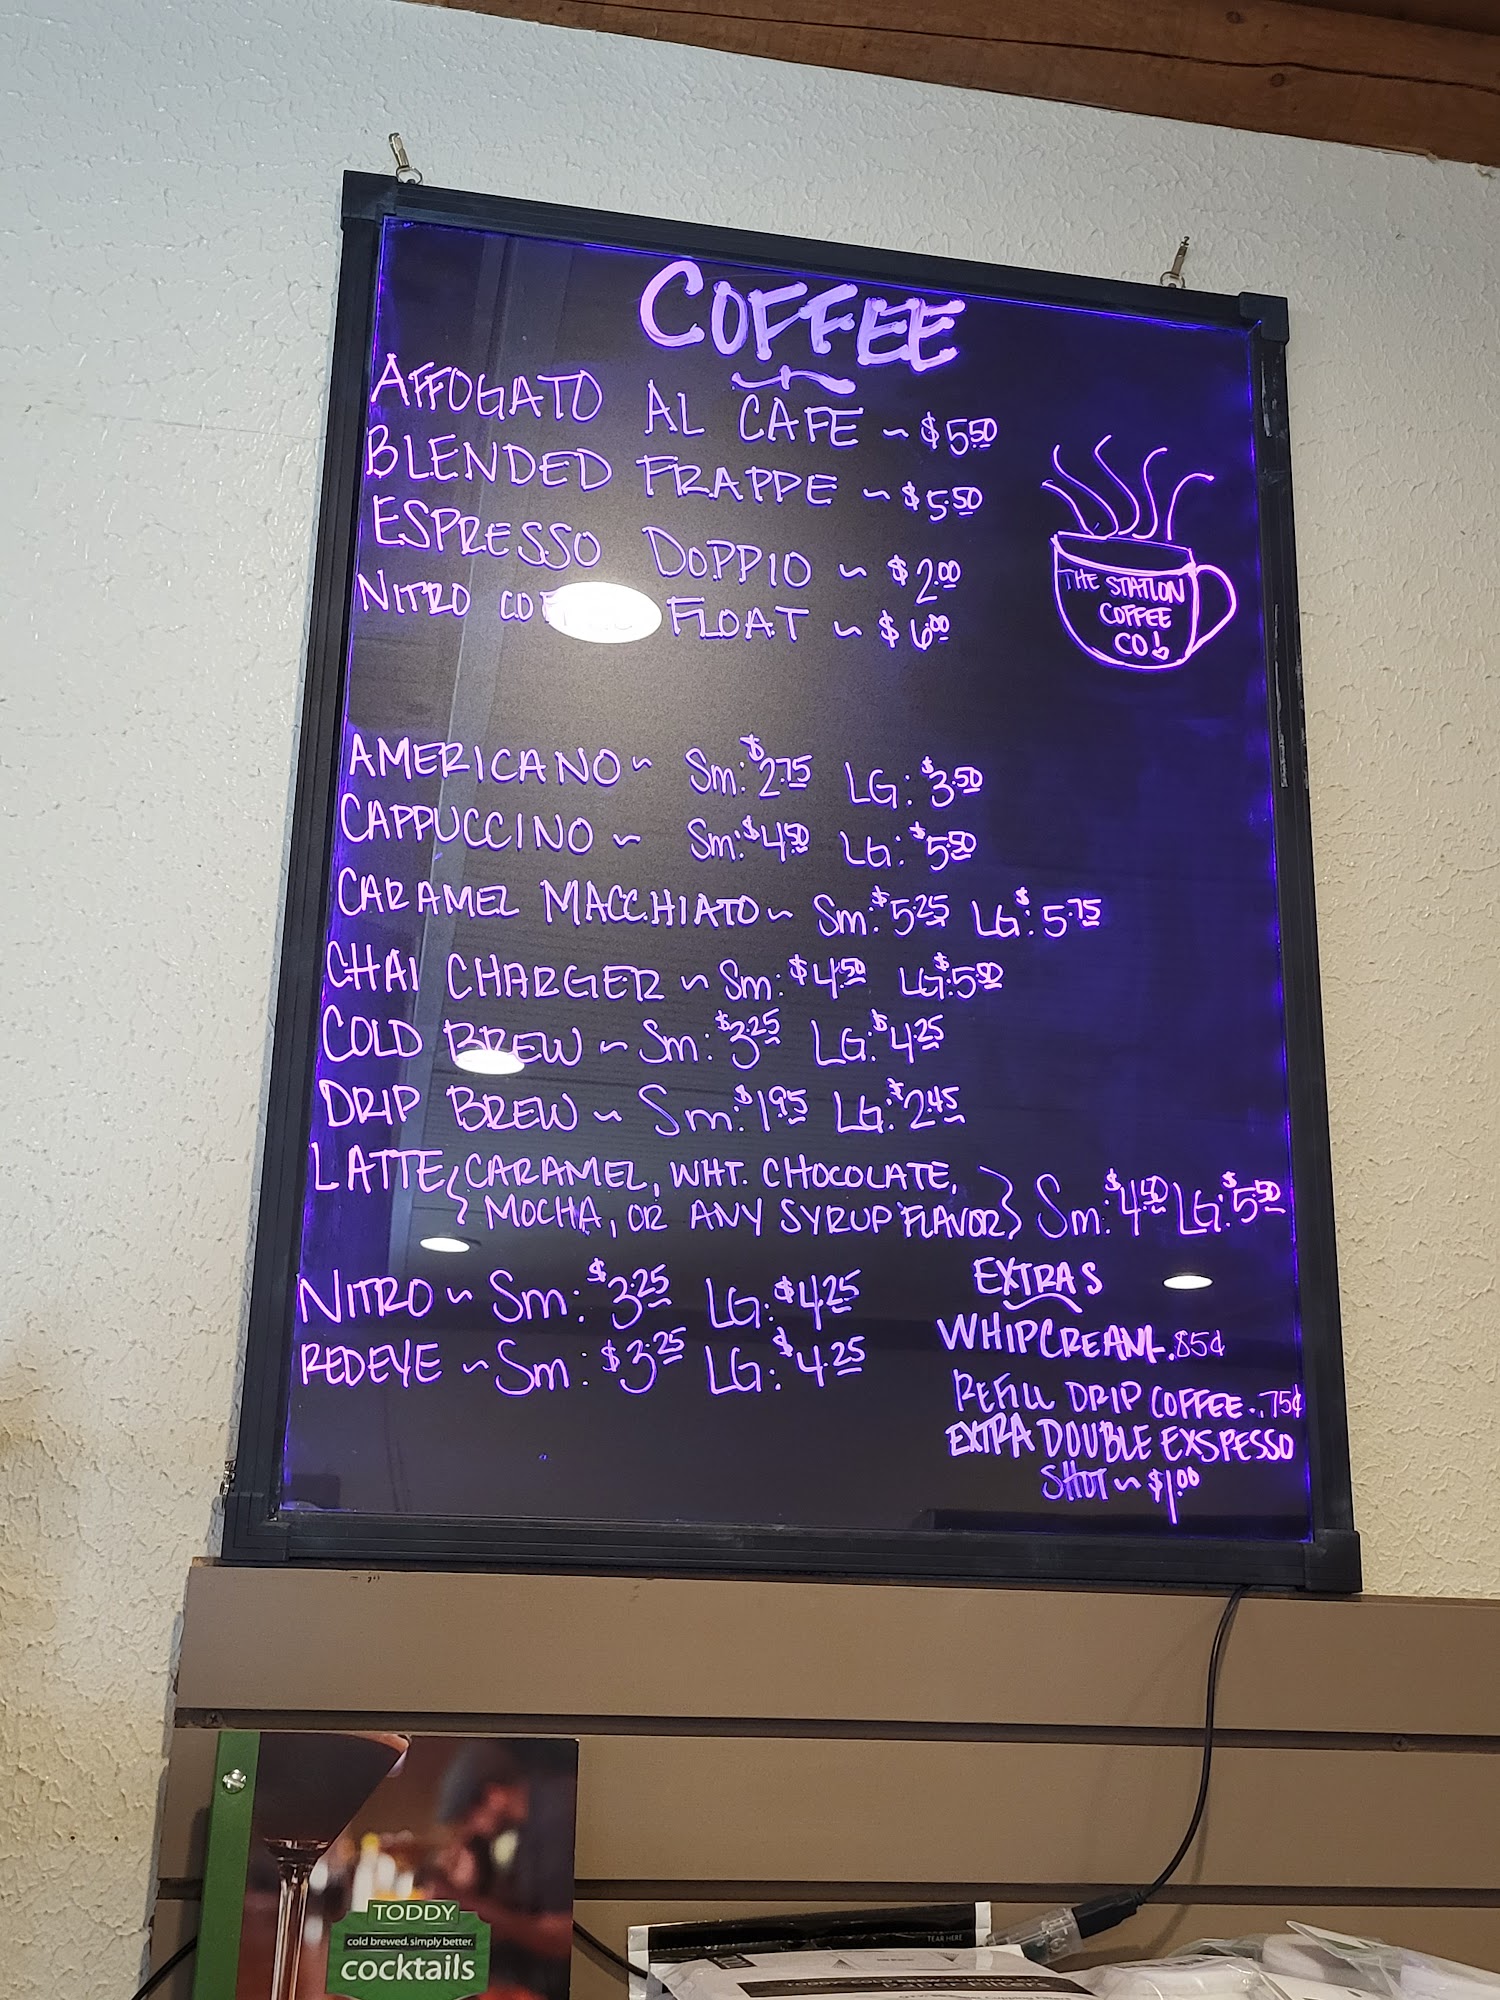 COFFEE
AFFOGATO AL CAFE ~ $5.50
BLENDED FRAPPE ~ $5.50
ESPRESSO DOPPIO ~ $2.00
NITRO FLOAT ~ $6.00
THE STATION
COFFEE
CO!
AMERICANO ~ Sm: $2.75 LG: $3.50
CAPPUCCINO ~ Sm: $4.50 LG: $5.50
CARAMEL MACCHIATO ~ Sm: $5.25 LG: $5.75
CHAI CHARGER ~ Sm: $4.50 LG: $5.50
COLD BREW ~ Sm: $3.25 LG: $4.25
DRIP BREW ~ Sm: $1.95 LG: $2.45
LATTE {CARAMEL, WHT. CHOCOLATE,
MOCHA, OR ANY SYRUP FLAVOR} Sm: $4.50 LG: $5.50
NITRO ~ Sm: $3.25 LG: $4.25
REDEYE ~ Sm: $3.25 LG: $4.25
EXTRAS
WHIPCREAM .85¢
REFILL DRIP COFFEE..75¢
EXTRA DOUBLE EXSPESSO
SHOT ~ $1.00
TODDY
cold brewed. simply better.
cocktails
TEAR HERE